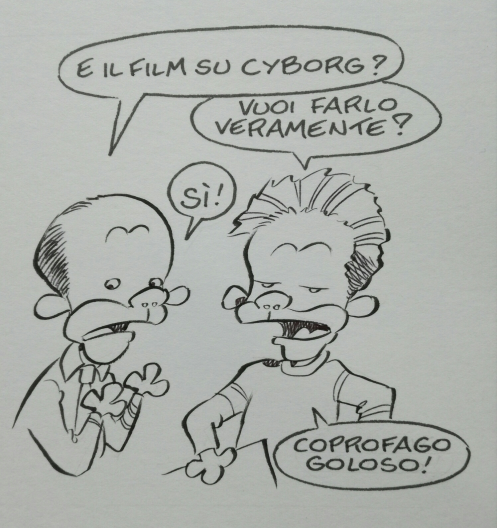 E IL FILM SU CYBORG?
VUOI FARLO
VERAMENTE?
SÌ!
COPROFAGO
GOLOSO!